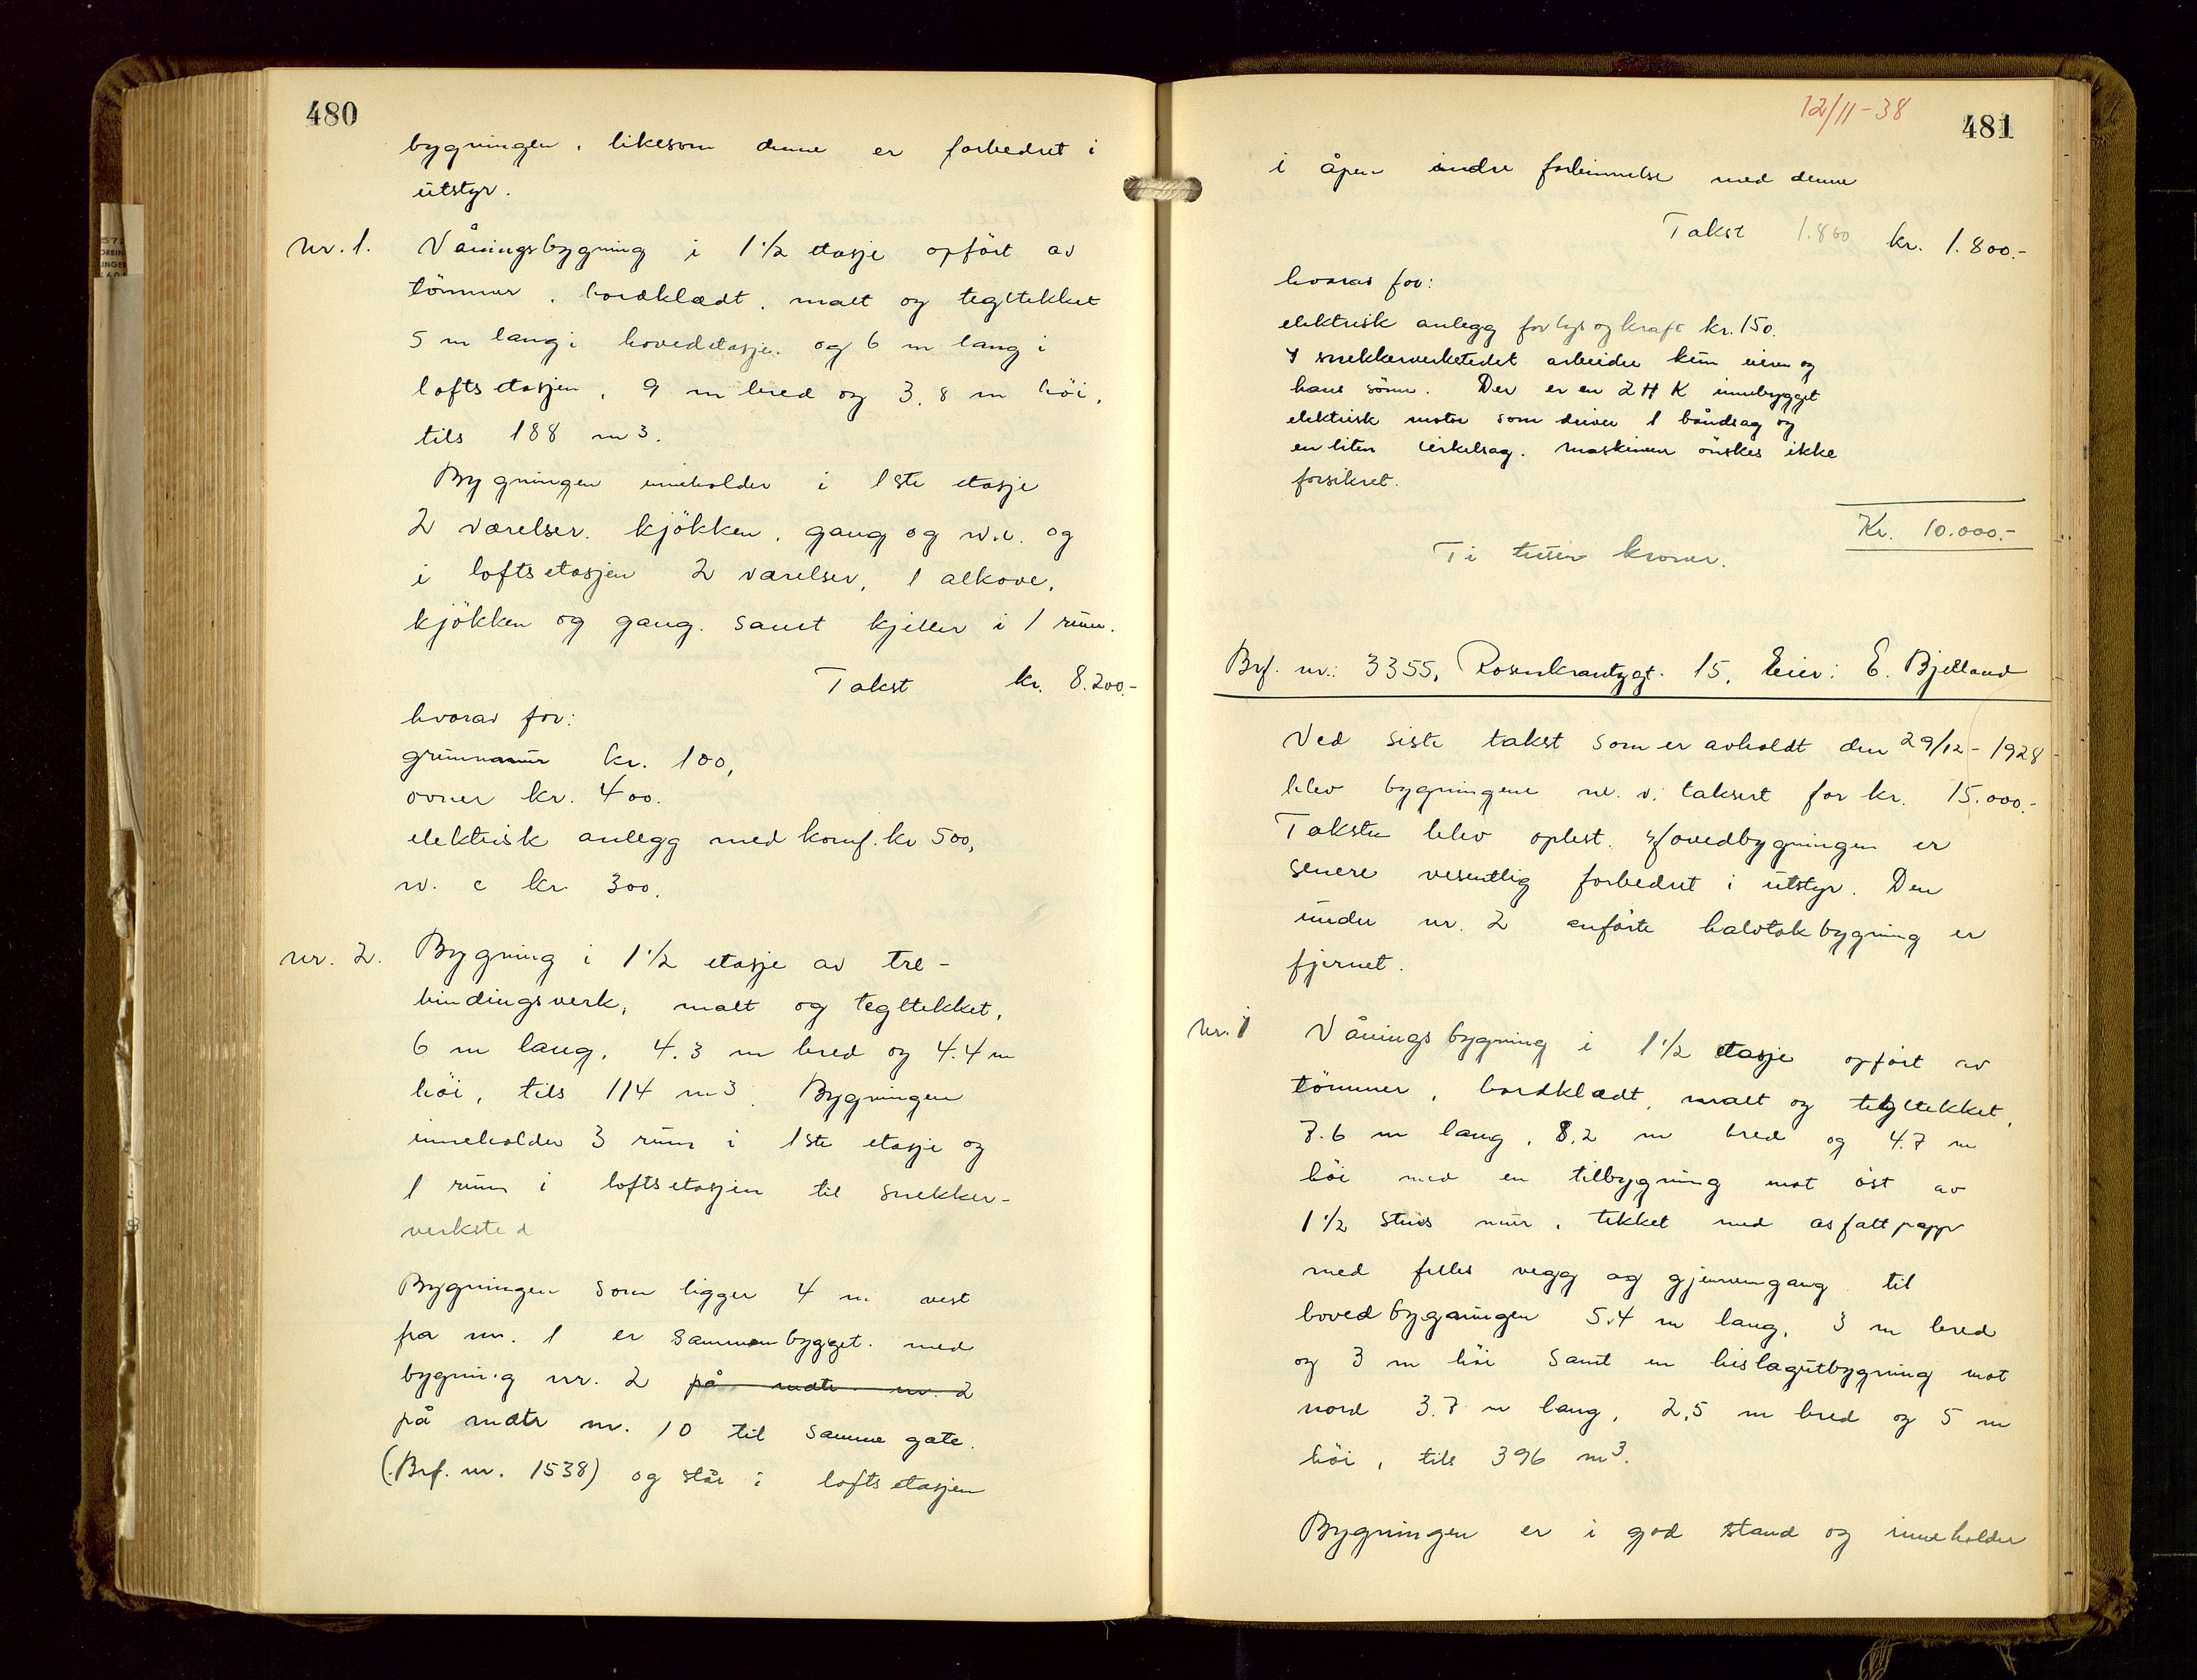 480
bygningen, likesom denne er forbedret i
utstyr.
Nr. 1. Våningsbygning i 1 1/2 etasje opført av
tömmer, bordklædt, malt og tegltekket
5 m lang i hovedetasje. og 6 m lang i
loftsetasjen, 9 m bred og 3,8 m höi,
tils 188 m3.
Bygningen inneholder i 1ste etasje
2 værelser, kjökken, gang og w.c. og
i loftsetasjen 2 værelser, 1 alkove,
kjökken og gang. samt kjeller i 1 rum.
Takst kr. 8.200.-
hvorav for:
grunnmur kr. 100,
ovner kr. 400.
elektrisk anlegg med komf. kr 500,
w. c kr 300.
nr. 2. Bygning i 1 1/2 etasje av tre-
bindingsverk, malt og tegltekket,
6 m lang, 4.3 m bred og 4.4 m
höi, tils 114 m3. Bygningen
inneholder 3 rum i 1ste etasje og
1 rum i loftsetasjen til snekker-
verksted
Bygningen som ligger 4 m vest
fra nr. 1 er sammenbygget. med
bygning nr. 2 på matr. nr. 2
på matr nr. 10 til samme gate.
(Brf. nr. 1538) og står i loftsetasjen
12/11-38
481
i åpen indre forbinnelse med denne
Takst 1.800 kr. 1.800.-
hvorav for:
elektrisk anlegg for lys og kraft kr. 150.
I snekkerverkstedet arbeider kun eieren og
hans sönn. Der er en 2 H K innebygget
elektrisk motor som driver 1 båndsag og
en liten cirkelsag. Maskinene önskes ikke
forsikret.
Kr. 10.000.-
Ti tusen kroner.
Brf. nr.: 3355, Rosenkrantzgt. 15, Eier: E. Bjelland
Ved siste takst som er avholdt den 29/12-1928
blev bygningene nr. v. taksert for kr. 15.000.-
Taksten blev oplest. Hovedbygningen er
senere vesentlig forbedret i utstyr. Den
under nr. 2 anförte halvtakbygning er
fjernet.
Nr. 1 Våningsbygning i 1 1/2 etasje opfört av
tömmer, bordklædt, malt og tegltekket,
7.6 m lang, 8,2 m bred og 4.7 m
höi med en tilbygning mot öst av
1 1/2 stens mur, tekket med asfaltpapp
med felles vegg og gjennemgang til
hovedbygningen 5.4 m lang, 3 m bred
og 3 m höi samt en bislagutbygning mot
nord 3.7 m lang, 2,5 m bred og 5 m
höi, tils 396 m3.
Bygningen er i god stand og inneholder